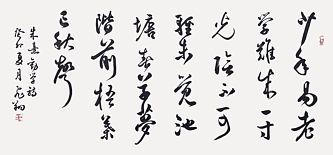 少年易老
学难成一寸
光阴不可
轻未觉池
塘春草梦
阶前梧叶
已秋声
朱熹劝学诗
癸卯夏月飞翔